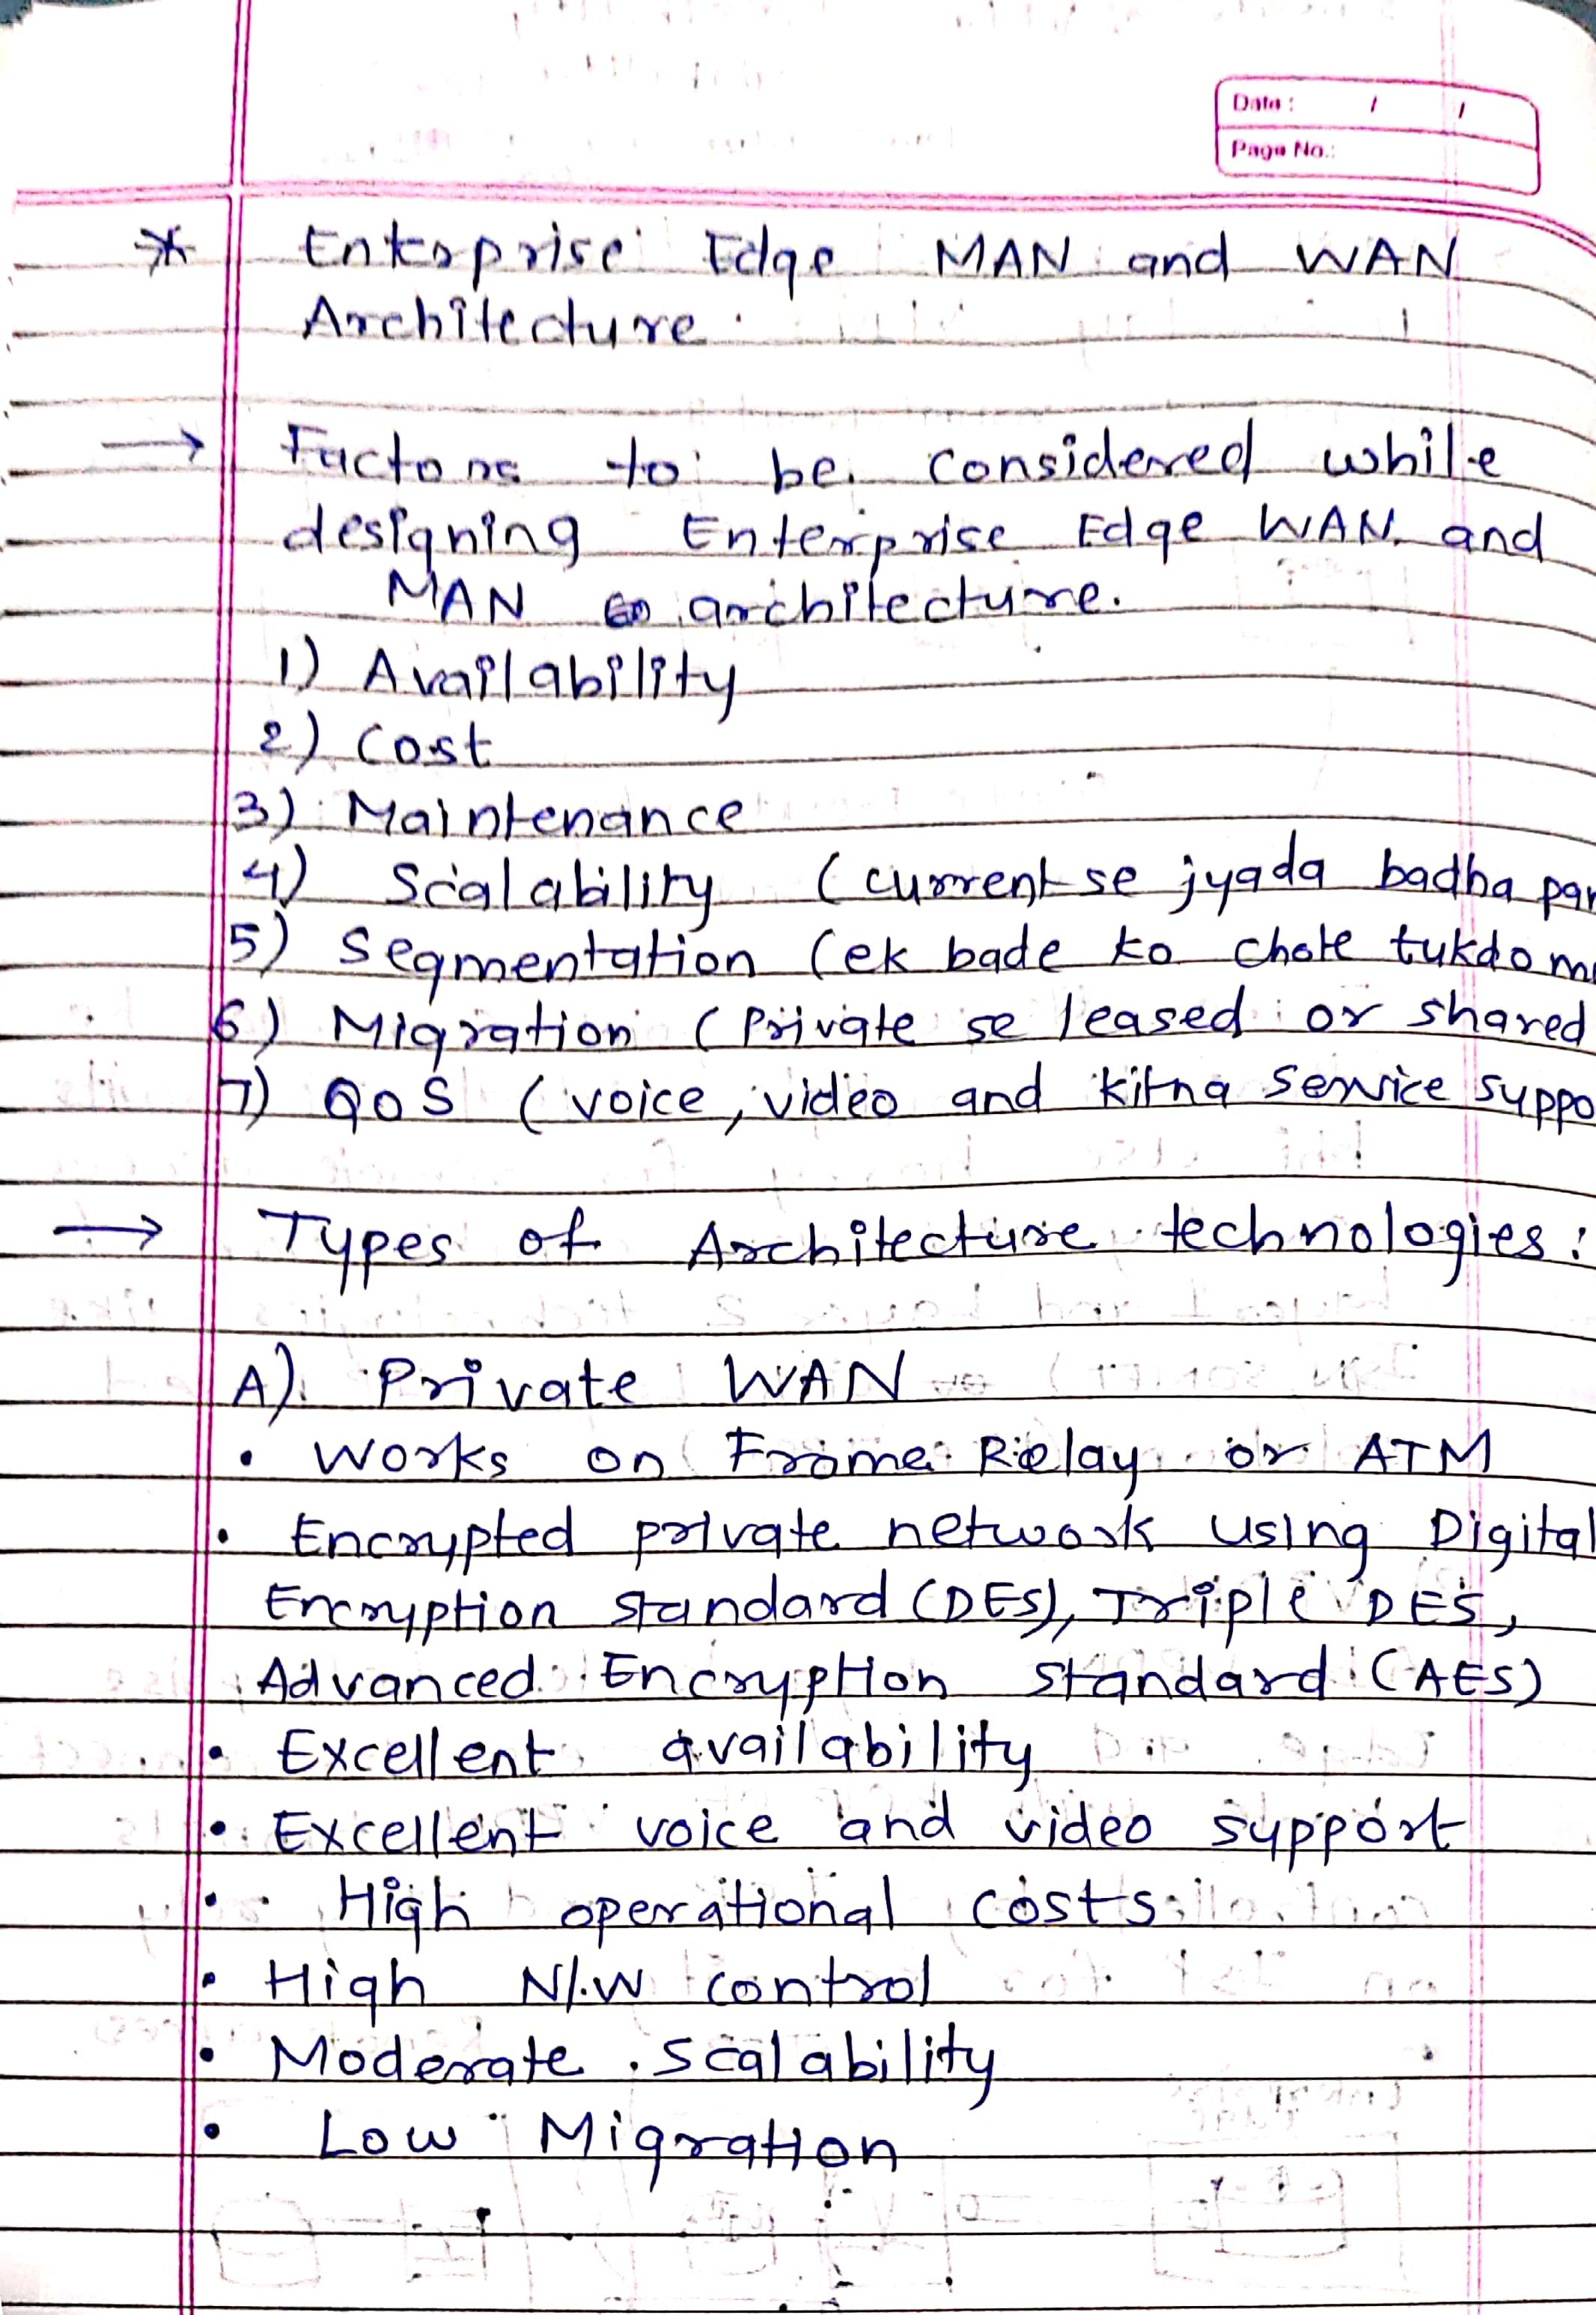 Date : / /
Page No.:
* Enterprise Edge MAN and WAN
Architecture.
→ Factors to be considered while
designing Enterprise Edge WAN and
MAN architecture.
1) Availability
2) Cost
3) Maintenance
4) Scalability (current se jyada badha
5) Segmentation (ek bade ko chote tukdo
6) Migration (Private se leased or shared
7) QoS (voice, video and kitna service
→ Types of Architecture technologies:
A) Private WAN
• Works on Frame Relay or ATM
• Encrypted private network using Digital
Encryption Standard (DES), Triple DES,
Advanced Encryption Standard (AES)
• Excellent availability
• Excellent voice and video support
• High operational costs
• High N/W control
• Moderate scalability
• Low Migration